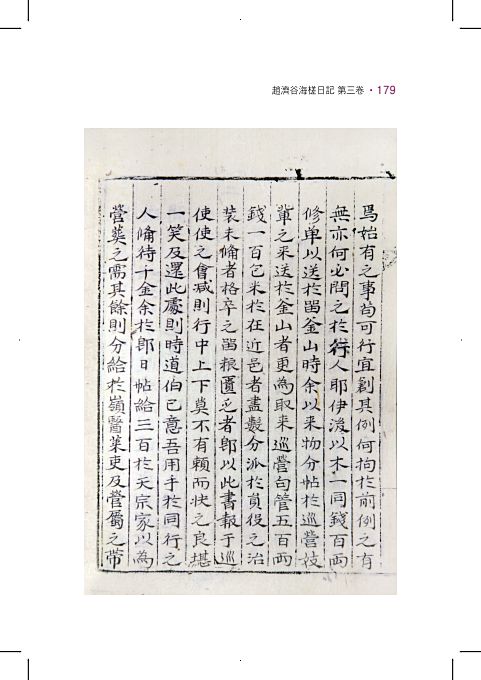 趙濟谷海槎日記 第三卷 • 179
爲始有之事苟可行宜創其例何拘於前例之有
無亦何必問之於行人耶伊後以木一同錢百兩
修單以送於留釜山時余以来物分帖於巡營妓
輩之来送於釜山者更為取来巡營句管五百兩
錢一百包米於在近邑者盡數分派於員役之治
裝未備者格卒之留粮匱乏者郎以此書報于巡
使使之會減則行中上下莫不有賴而快之良堪
一笑及還此處則時道伯已意吾用手於同行之
人備待千金余於郎日帖給三百於天宗家以為
營葬之需其餘則分給於嶺醫葉吏及營屬之帶